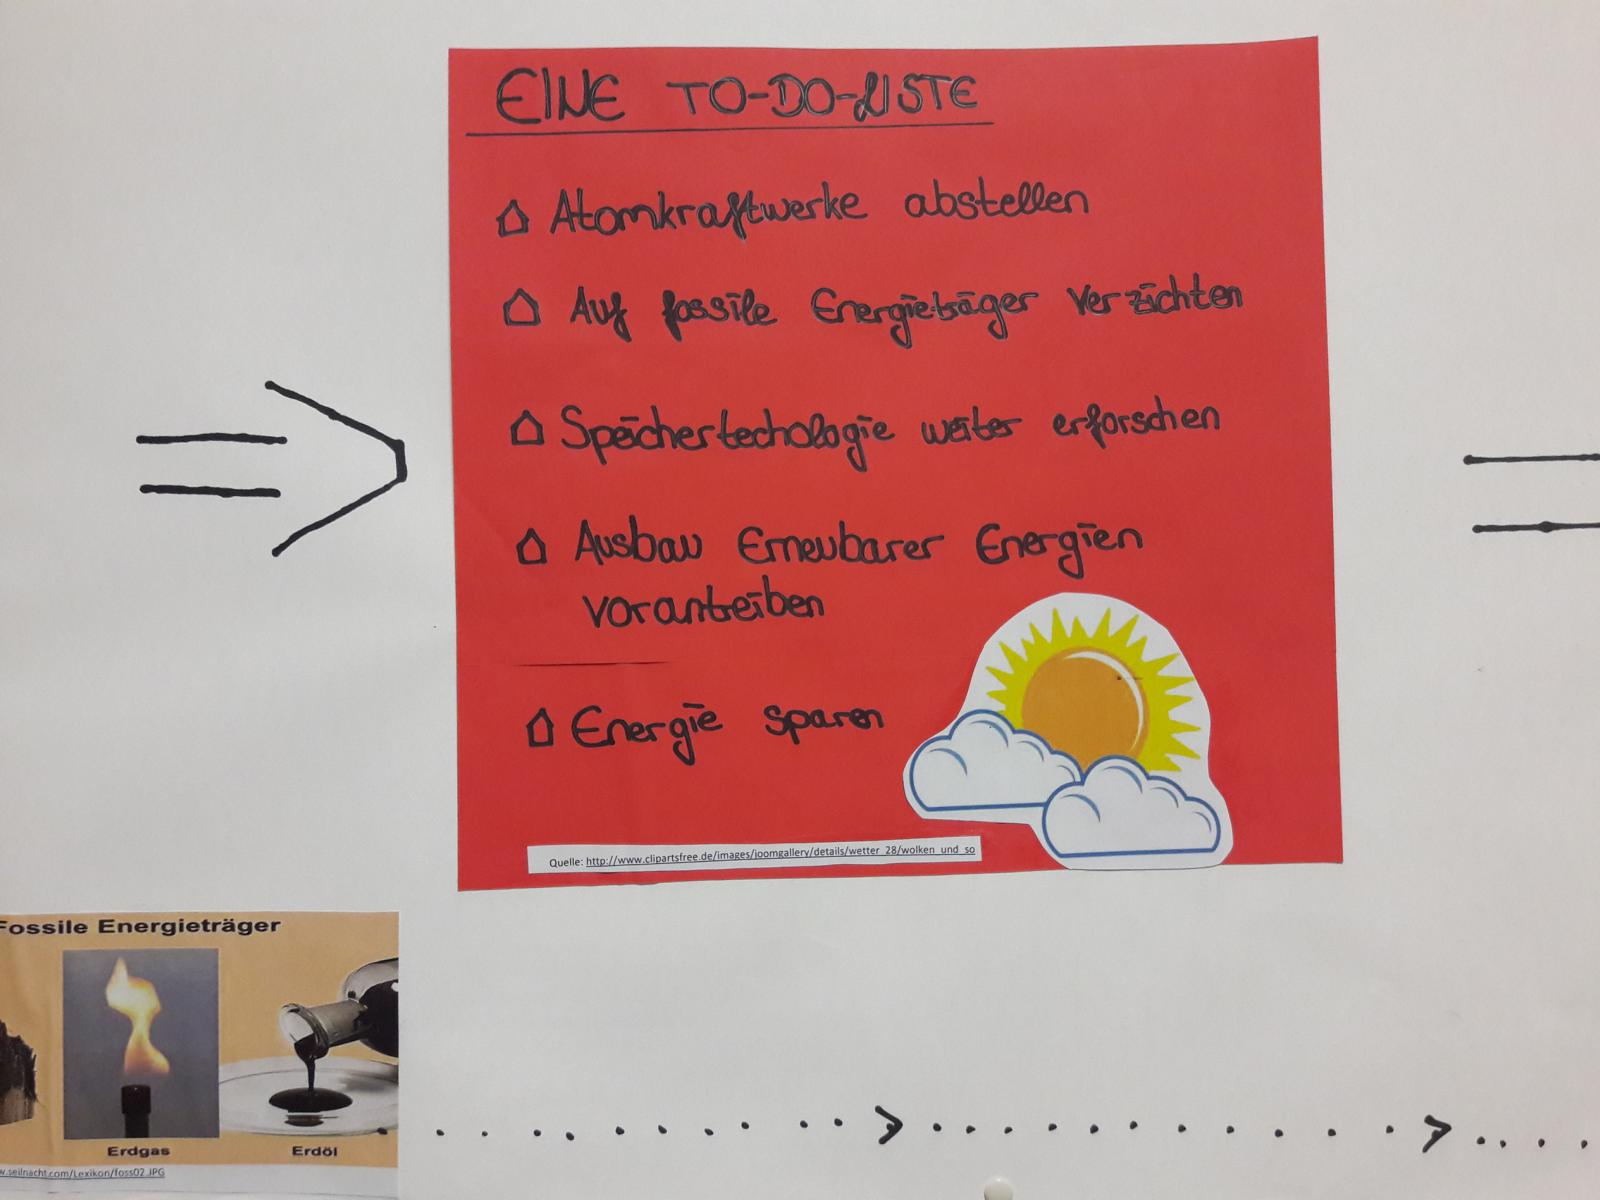 EINE TO-DO-LISTE
Atomkraftwerke abstellen
Auf fossile Energieträger verzichten
Speichertechologie weiter erforschen
Ausbau Erneubarer Energien
vorantreiben
Energie sparen
Quelle: http://www.clipartsfree.de/images/joomgallery/details/wetter_28/wolken_und_so
Fossile Energieträger
Erdgas Erdöl
w.seilnacht.com/Lexikon/foss02.JPG